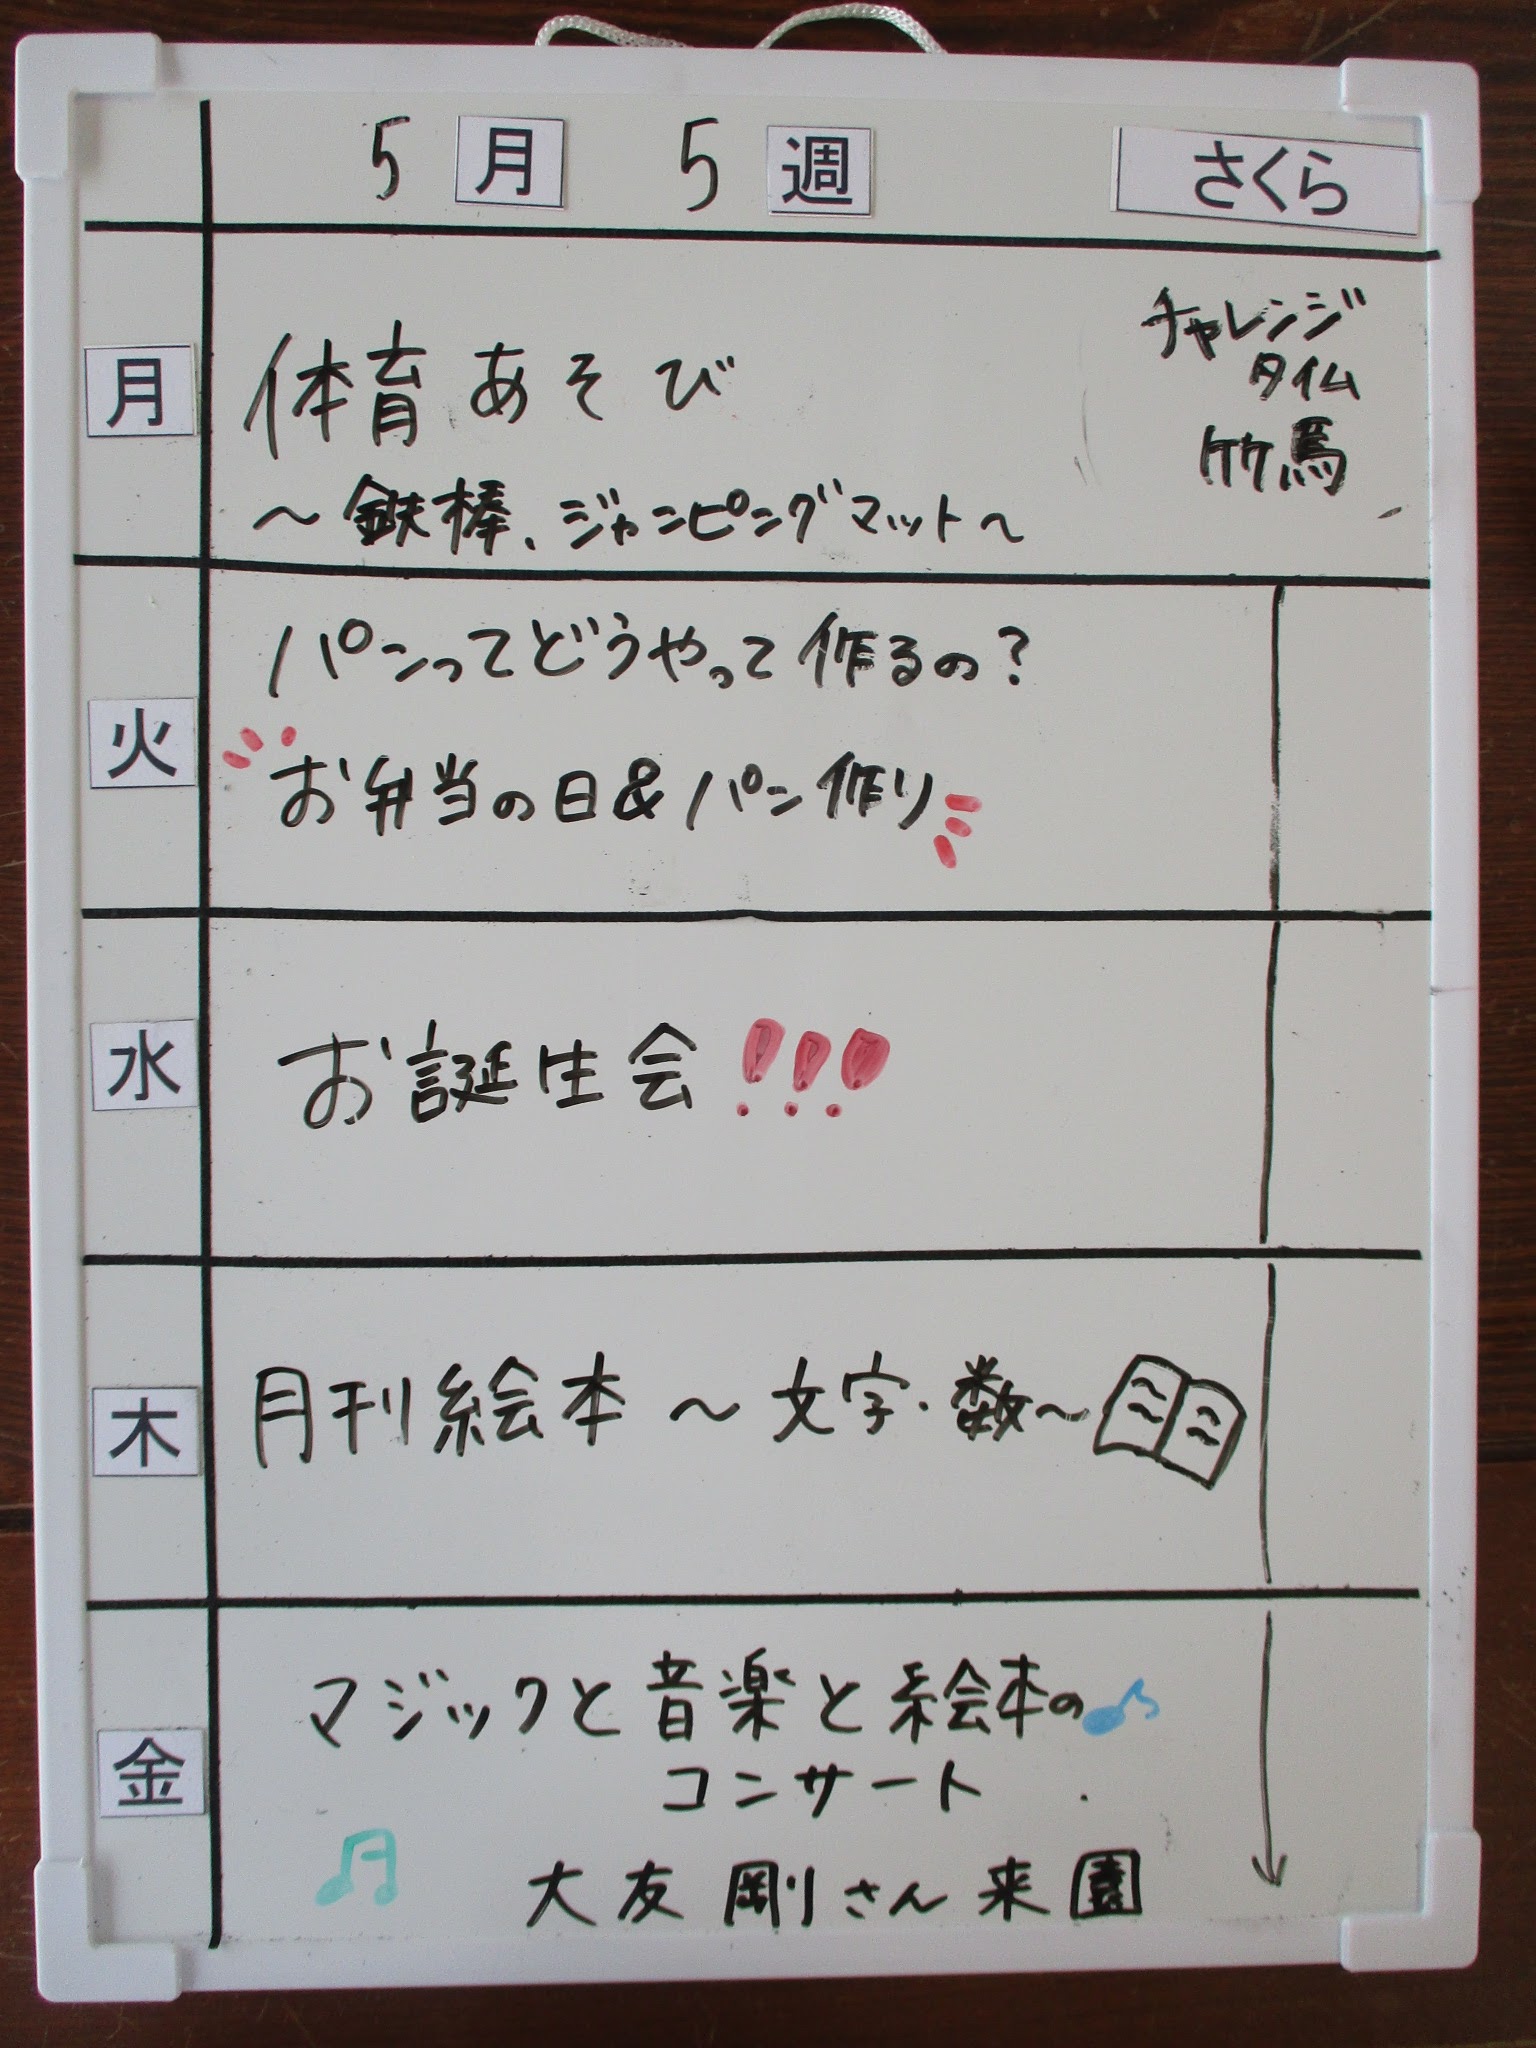 5月 5週 さくら
月
体育あそび
～鉄棒、ジャンピングマット～
チャレンジ
タイム
竹馬
火
パンってどうやって作るの？
お弁当の日&パン作り
水
お誕生会!!!
木
月刊絵本 ～文字・数～
金
マジックと音楽と絵本の
コンサート
大友剛さん来園